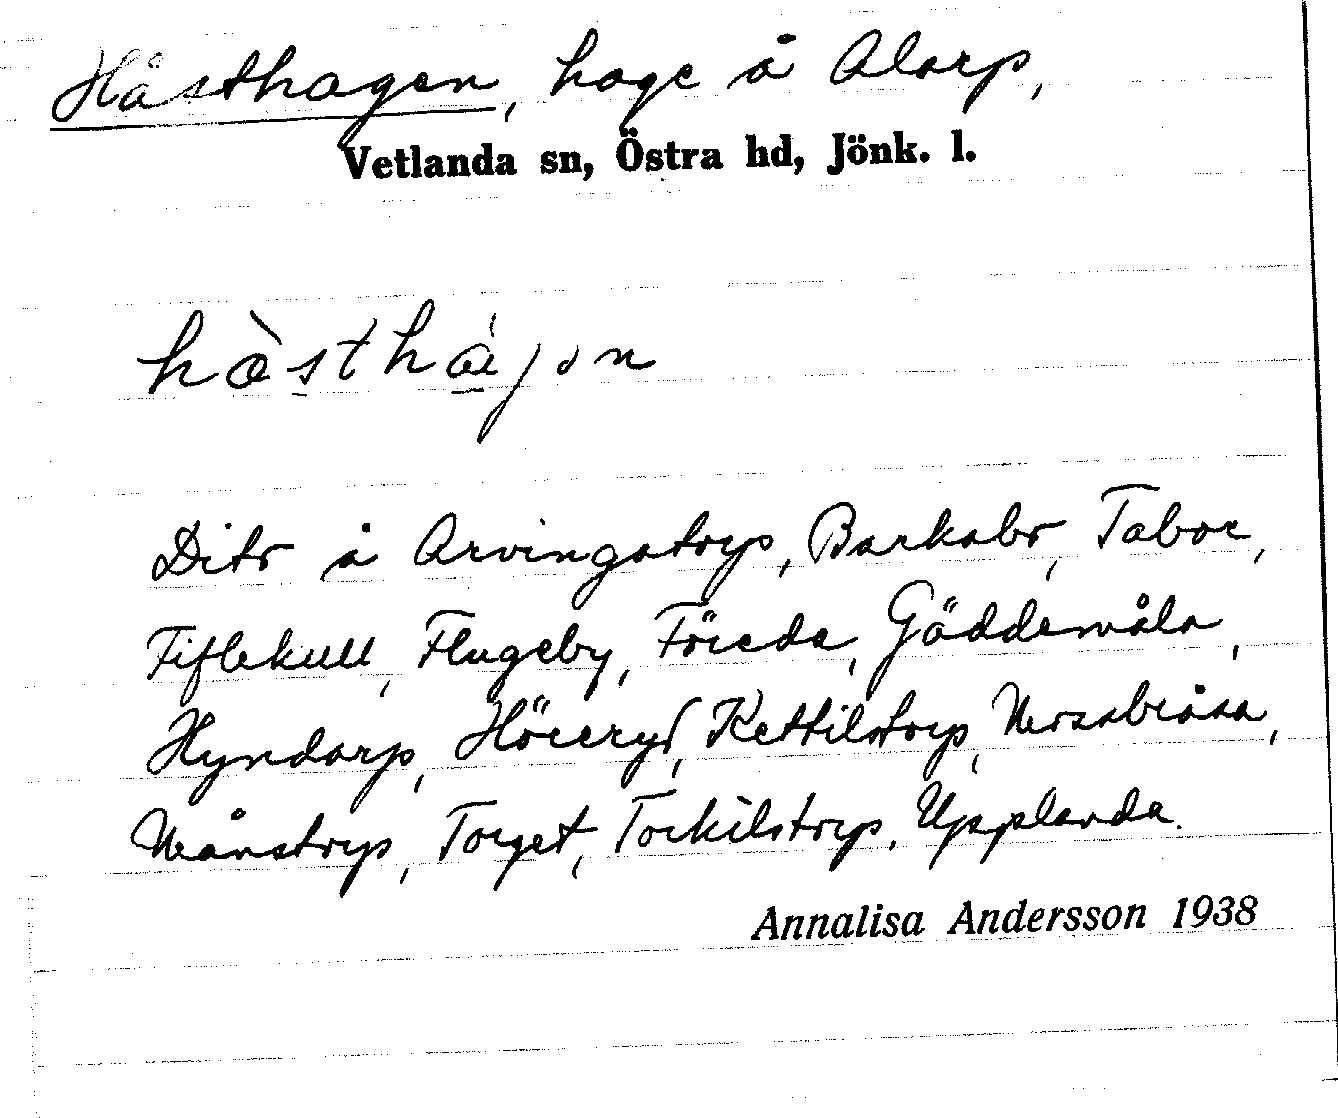 Hästhagen, hage å Alarp,
Vetlanda sn, Östra hd, Jönk. l.
Dito å Arvingatorp, Barkabo, Tabor,
Fiflekull, Flugeby, Föreda, Gäddemåla,
Hyndarp, Höreryd, Kettilstorp, Mossebråna,
Månstorp, Torget, Torkilstorp, Upplanda.
Annalisa Andersson 1938